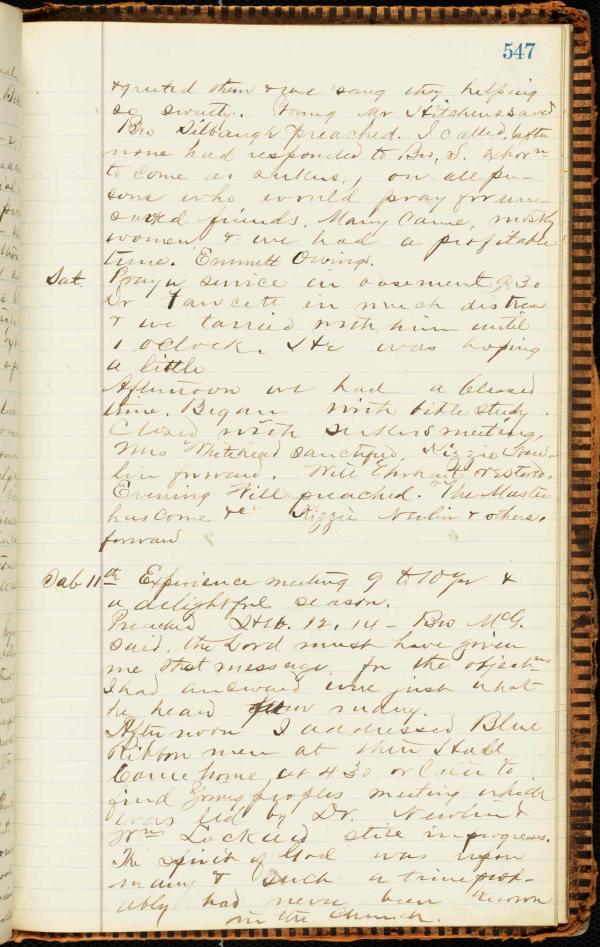 547
& greeted them & we sang they helping
so sweetly. Young Mr Hitchens saved
Bro Silbaugh preached. I called, after
none had responded to Bro, S.
to come as seekers, on all per-
sons who would pray for un-
saved friends. Many came, mostly
women & we had a profitable
time. Emmett Owings.
Sat. Prayer service in basement 9.30
Dr Fawcett in much distress
& we tarried with him until
1 oclock. He was hoping
a little
Afternoon we had a blessed
time. Began with bible study.
Closed with seekers meeting,
Mrs Whitehead sanctified. Lizzie New-
lin forward. Will Ehrhart restored.
Evening Will preached. "The Master
has come &c" Lizzie Newlin & others,
forward
Sab 11th Experience meeting 9 to 10 &
a delightful season.
Preached Heb. 12, 14 - Bro McG.
said, the Lord must have given
me that message for the objections
I had answered were just what
he heard from many.
Afternoon I addressed Blue
Ribbon men at their Hall
Came home, at 4 30 or later to
find Young peoples meeting which
was led by Dr. Newlin &
Wm Lockard still in progress.
The spirit of God was upon
many & such a time prob-
ably had never been known
in the church.